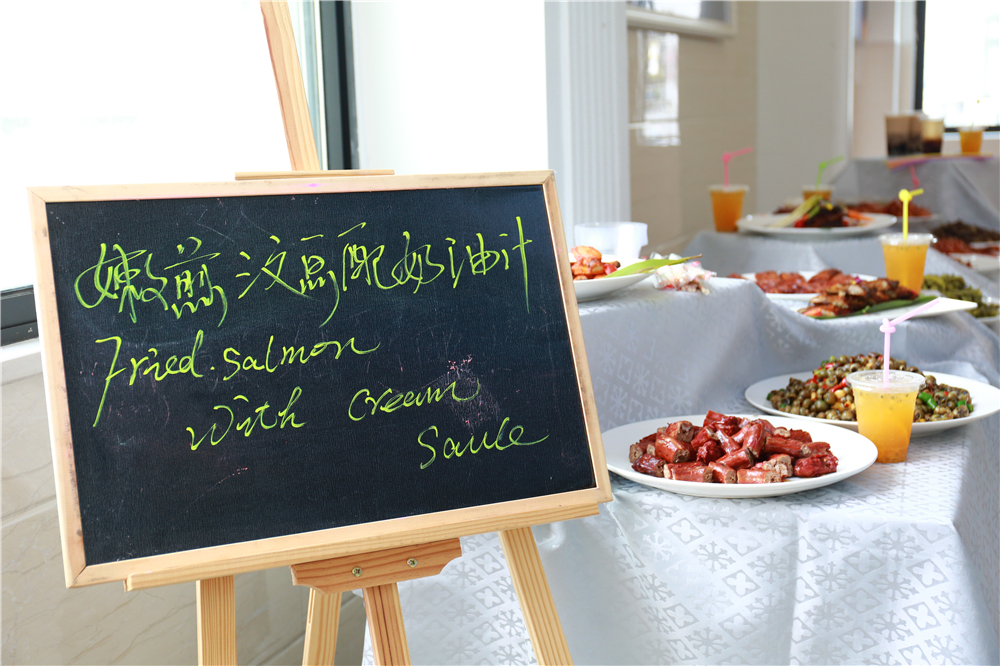 嫩煎三文鱼配奶油汁
Fried. salmon
with cream
sauce